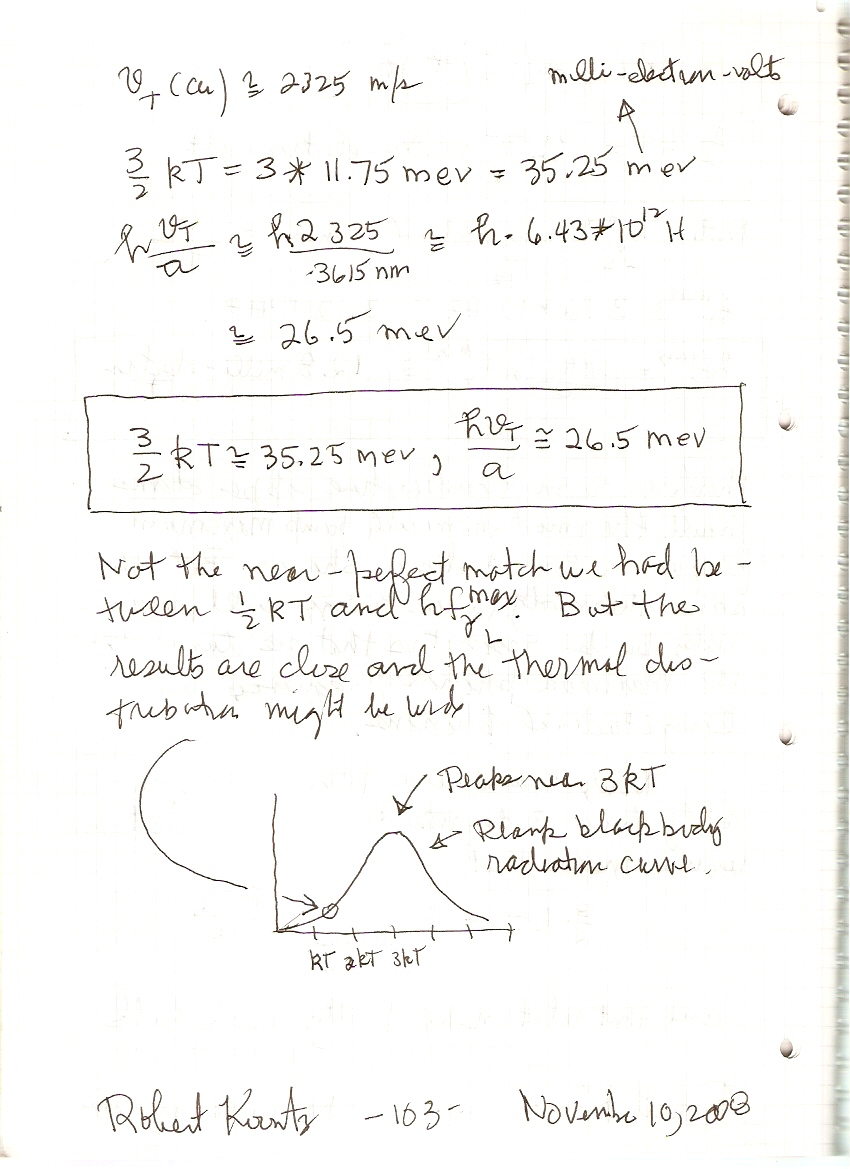 v_T (Cu) ≅ 2325 m/s
milli-electron-volts
3/2 kT = 3 * 11.75 mev = 35.25 mev
h v_T/a ≅ h · 2325/.3615 nm ≅ h · 6.43 * 10^12 H
≅ 26.5 mev
3/2 kT ≅ 35.25 mev, h v_T/a ≅ 26.5 mev
Not the near-perfect match we had be-
tween 1/2 kT and hf_γL^max. But the
results are close and the thermal dis-
tribution might be
Peaks near 3kT
Plank blackbody
radiation curve.
kT 2kT 3kT
Robert Koontz -103- November 10, 2008